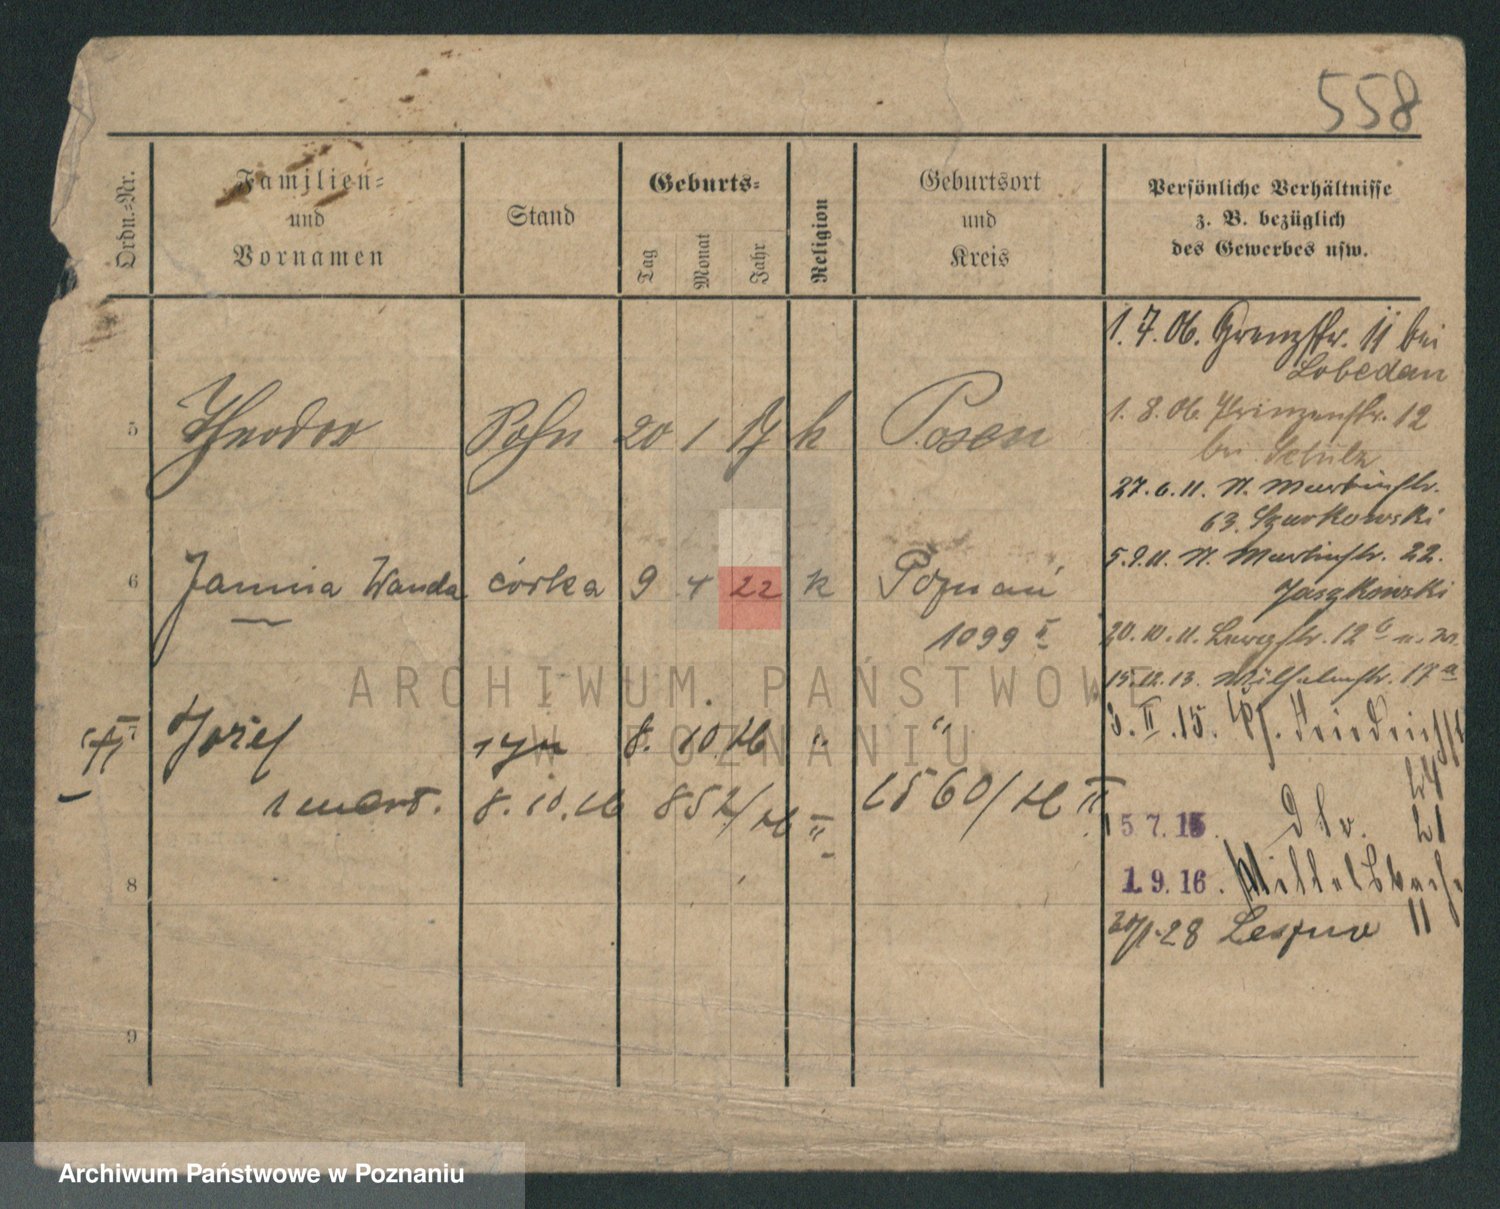 558
Ordn.-Nr.
Familien-
und
Vornamen
Stand
Geburts-
Tag
Monat
Jahr
Religion
Geburtsort
und
Kreis
Persönliche Verhältnisse
z. B. bezüglich
des Gewerbes usw.
5 Theodor Sohn 20 1 17 k Posen
6 Janina Wanda córka 9 4 22 k Poznań
1099 II
7 Józef syn 8. 10. 26 " "
zmarł. 8. 10. 26 852/26 II 1560/26 II
8
9
1. 7. 06. Grenzstr. 11 bei
Lobedan
1. 8. 06. Prinzenstr. 12
bei Schulz
27. 6. 11. St. Martinstr.
63. Szurkowski
5. 9. 11. St. Martinstr. 22.
Jaszkowski
20. 10. 11. Langstr. 12
15. 12. 13. Wilhelmstr. 17a
3. II. 15. Friedrichstr
24
5. 7. 15. 21
1. 9. 16.
11
28 Leszno
ARCHIWUM PAŃSTWOWE
W POZNANIU
Archiwum Państwowe w Poznaniu